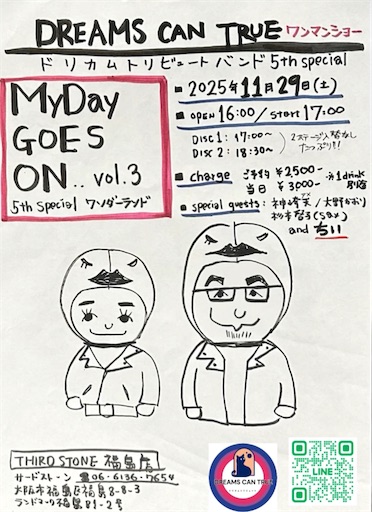 DREAMS CAN TRUE ワンマンショー
ドリカムトリビュートバンド 5th special
MyDay
GOES
ON.. vol.3
5th special ワンダーランド
■ 2025年11月29日(土)
■ open 16:00/start 17:00
DISC 1: 17:00〜
DISC 2: 18:30〜
2ステージ入替なし
たっぷり!!
■ charge ご予約 ¥2500-
当日 ¥3000-
※1drink
別途
■ special guests:
大野かおり
(sax)
and ちい
THIRD STONE 福島店
サードストーン ☎06-6136-7654
大阪市福島区福島8-8-3
ランドマーク福島B1-2号
DREAMS CAN TRUE
LINE